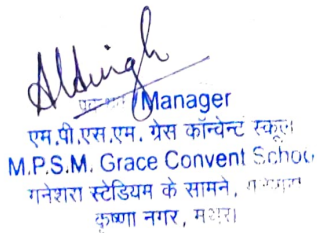 प्रबन्धक/Manager
एम.पी.एस.एम. ग्रेस कॉन्वेन्ट स्कूल
M.P.S.M. Grace Convent School
गनेशरा स्टेडियम के सामने,
कृष्णा नगर, मथुरा